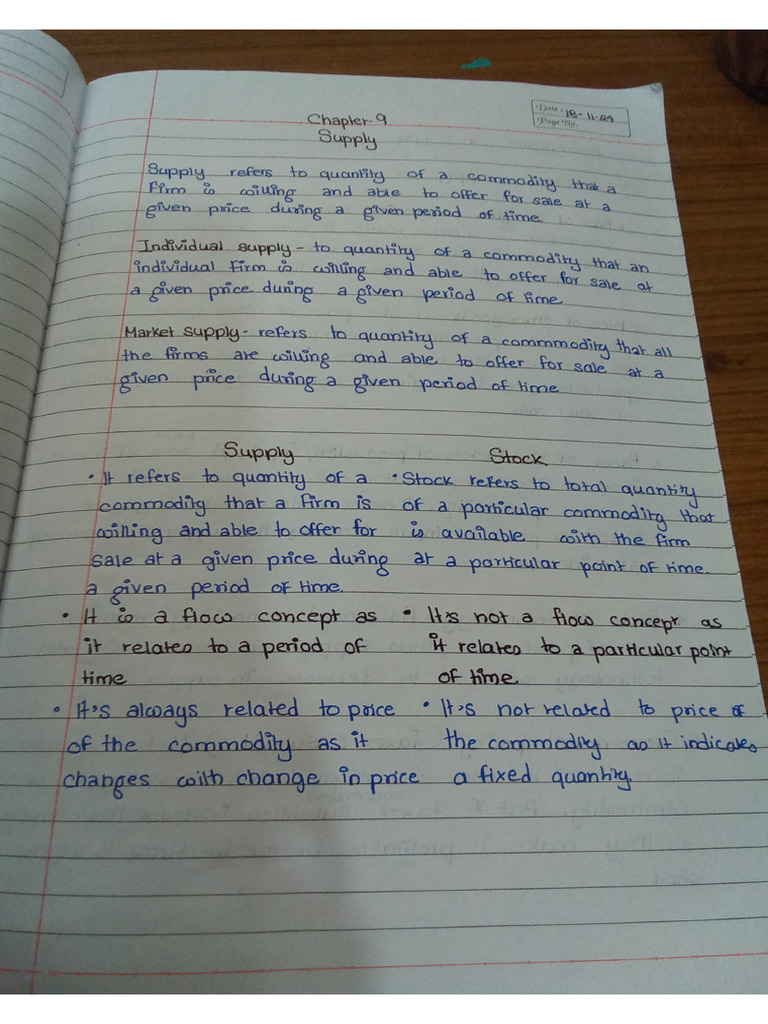 Date: 18-11-24
Page No.
Chapter-9
Supply
Supply refers to quantity of a commodity that a
firm is willing and able to offer for sale at a
given price during a given period of time.
Individual supply - to quantity of a commodity that an
individual firm is willing and able to offer for sale at
a given price during a given period of time
Market supply - refers to quantity of a commmodity that all
the firms are willing and able to offer for sale at a
given price during a given period of time
Supply
• It refers to quantity of a
commodity that a firm is
willing and able to offer for
sale at a given price during
a given period of time.
• It is a flow concept as
it relates to a period of
time
• It's always related to price
of the commodity as it
changes with change in price
Stock
• Stock refers to total quantity
of a particular commodity that
is available with the firm
at a particular point of time.
• It's not a flow concept as
it relates to a particular point
of time.
• It's not related to price of
the commodity as it indicates
a fixed quantity.